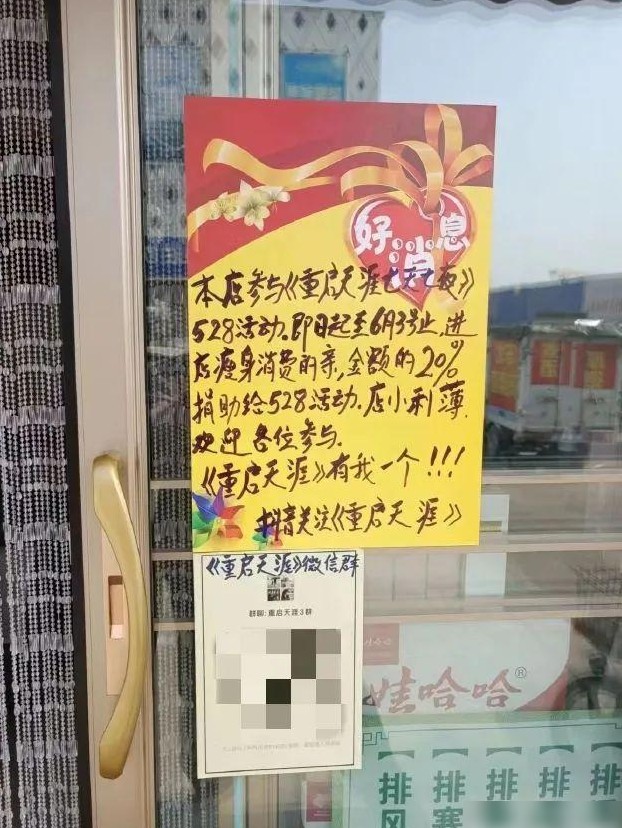 好消息
本店参与《重启天涯七天七夜》
528活动.即日起至6月3号止,进
店瘦身消费的亲,金额的20%
捐助给528活动.店小利薄.
欢迎各位参与.
《重启天涯》有我一个!!!
抖音关注《重启天涯》
《重启天涯》微信群
群聊:重启天涯3群
娃哈哈®
【排风
【排寒
【排
【排
【排